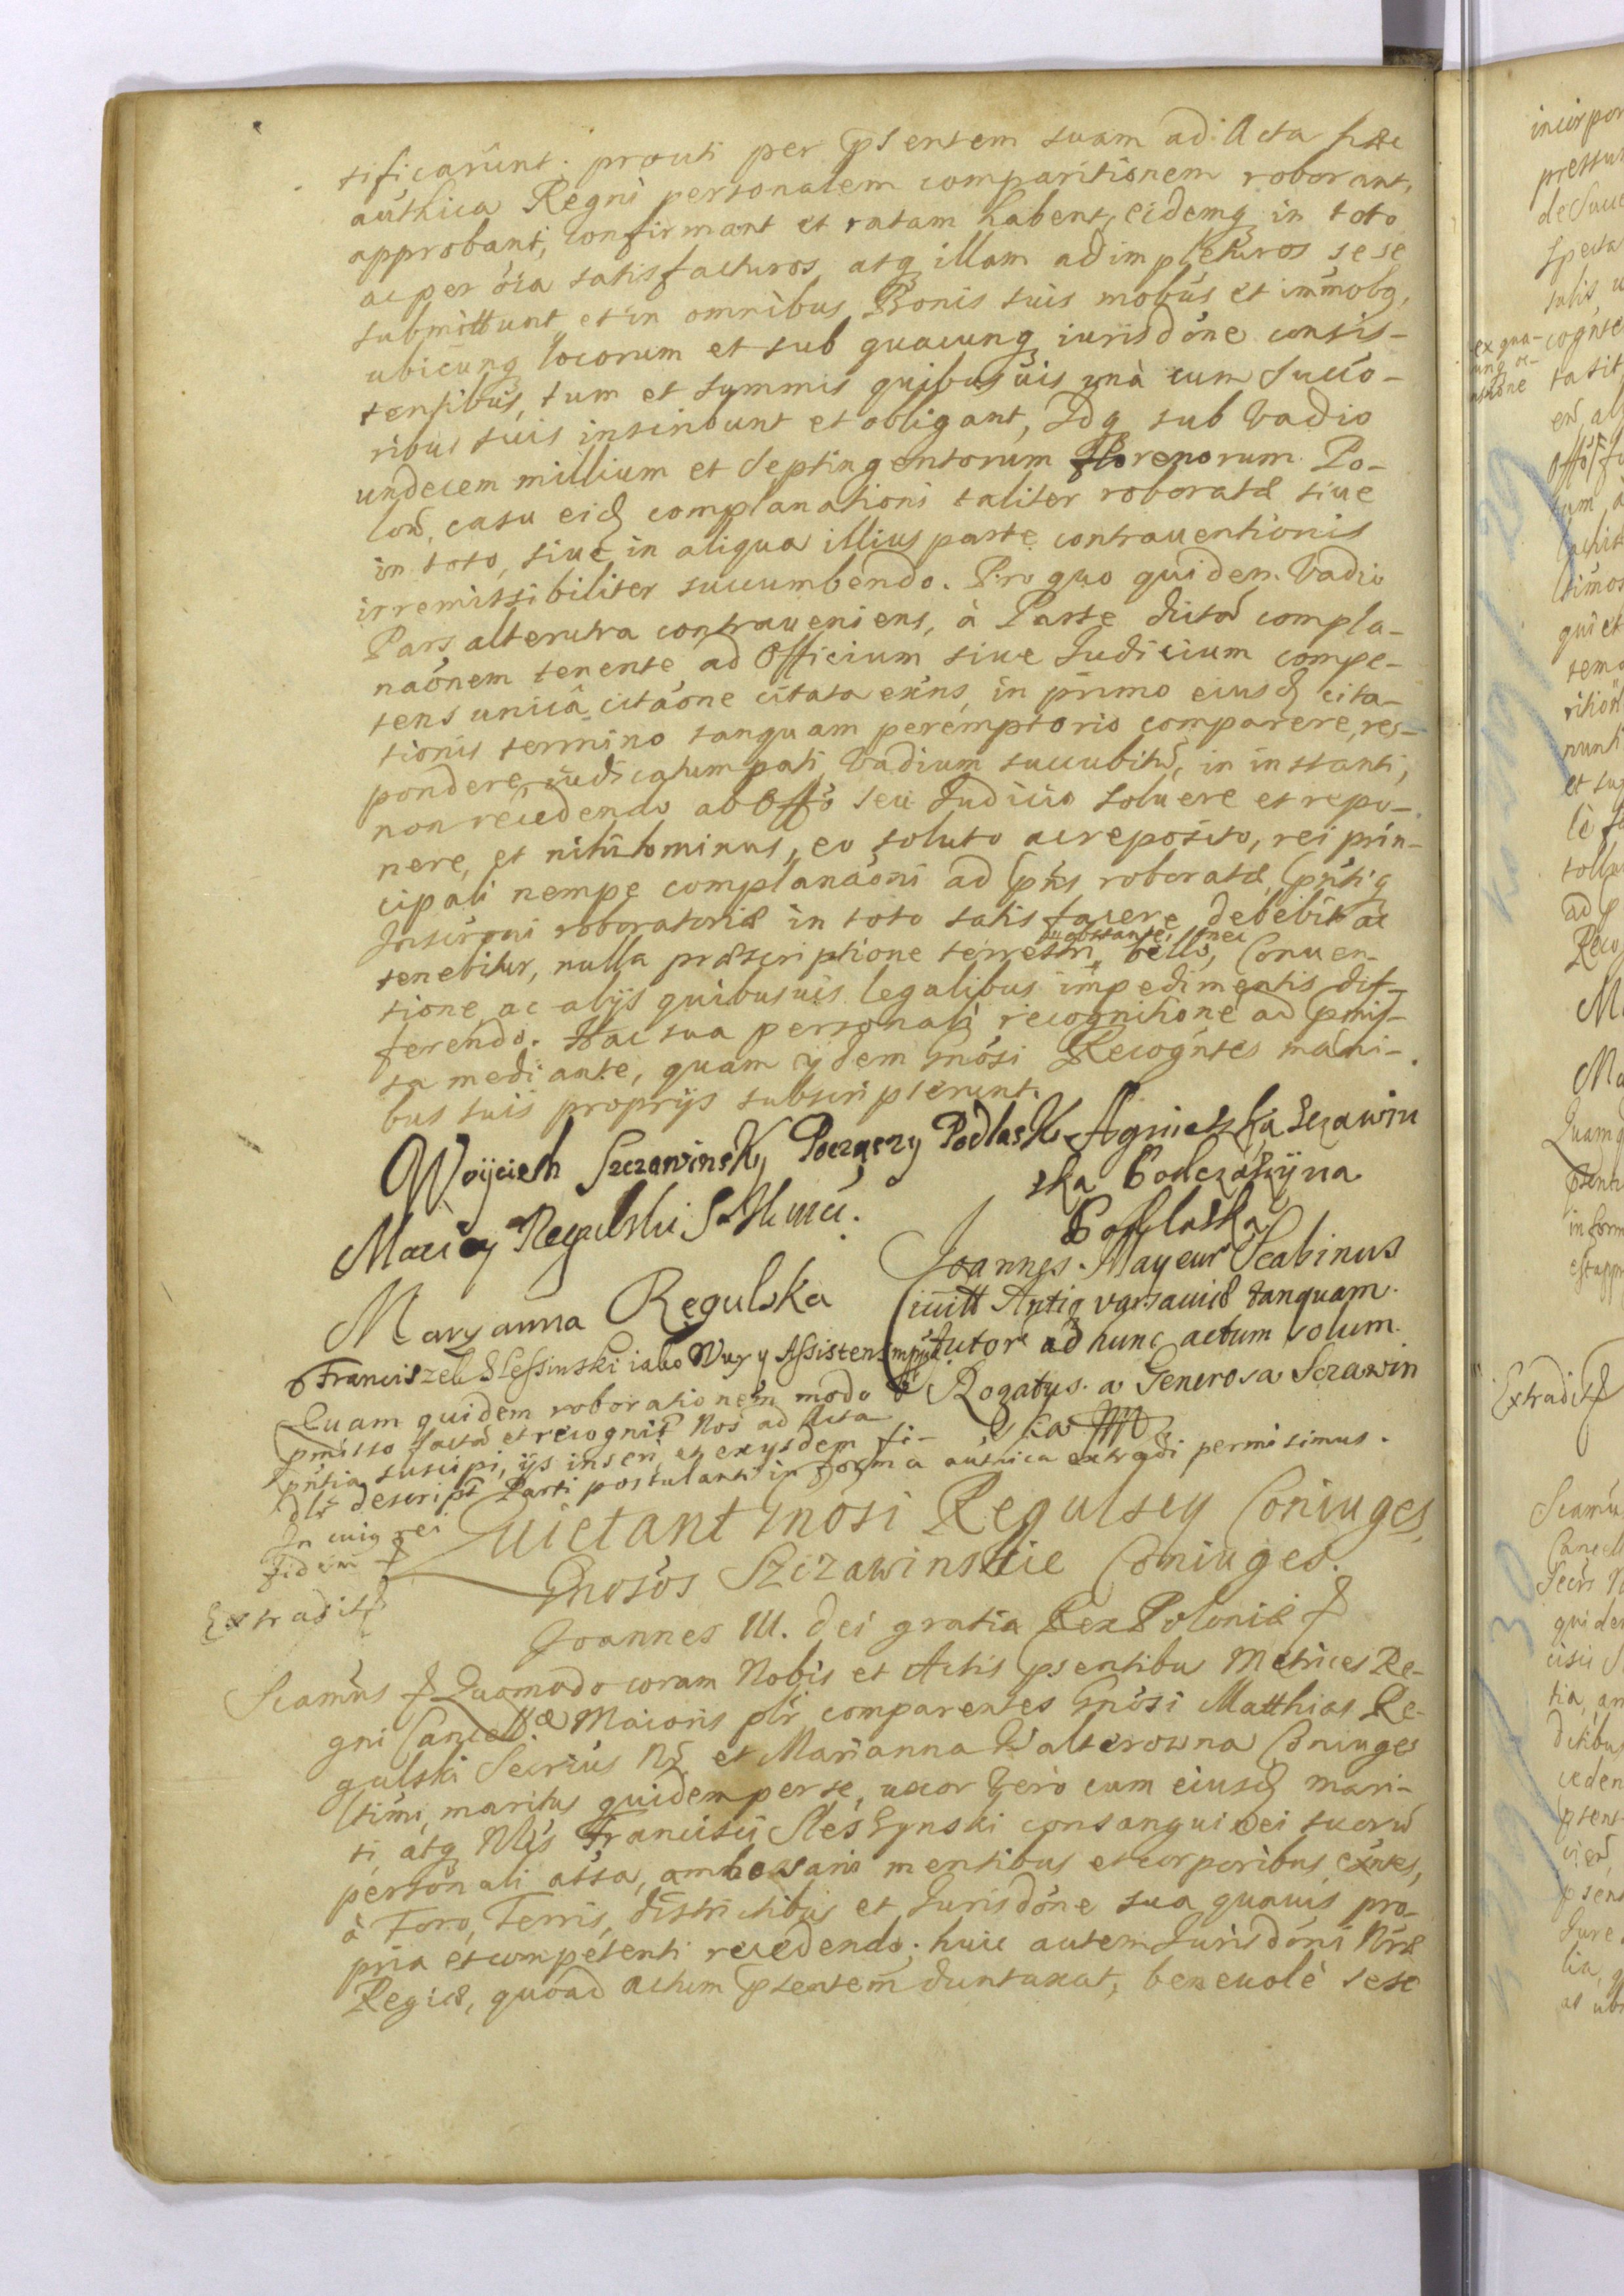 tificarunt: prouti per psentem suam ad Acta hæc
authica Regni personalem comparitionem roborant,
approbant, confirmant et ratam habent, eidemq in toto
ac per oia satisfacturos, atq illam adimpleturos sese
submittunt, et in omnibus Bonis suis mobus et immobq,
ubicunq locorum et sub quacunq iurisdone consis-
tentibus, tum et summis quibusuis unà cum Succo-
ribus suis inscribunt et obligant, Idq sub Vadio
undecem millium et Septingentorum florenorum Po-
lon, casu eid complanationi taliter roboratæ siue
in toto, siue in aliqua illius parte contrauentionis
irremissibiliter succumbendo. Pro quo quidem Vadio
Pars alterutra contraueniens, à Parte dictam compla-
naonem tenente, ad Officium siue Judicium compe-
tens unicâ citaone citata exns, in primo eiusd cita-
tionis termino tanquam peremptorio comparere, res-
pondere, iudicatum pati, Vadium succubitum, in instanti,
non recedendo ab Offo seu Judicio soluere et repo-
nere, et nihilominus, eo soluto ac reposito, rei prin-
cipali nempe complanaoni ad pns roboratæ, pntiq
Inscrpni roboratoriæ in toto satisfacere debebit ac
tenebitur, nulla præscriptione terrestri obstante, nec bello, Conuen-
tione, ac alijs quibusuis legalibus impedimentis dif-
ferendo. Hac sua personali recognitione ad pmis-
sa mediante, quam ijdem Gnosi Recogntes mani-
bus suis proprijs subscripserunt.
Woyciech Szczawinsky Poczaszy Podlask Agnieszka Sczawin
ska Podczaszyna
Podlaska
Maciey Regulski S
Joannes Mayeur Scabinus
Maryanna Regulska
Ciuitt Antiq varsauiæ tanquam
Franciszek Slessinski iako Wuy y Assistens mpp
Tutor ad hunc actum solum
Rogatus a Generosa Sczawin
ska
Quam quidem roborationem modo
pmisso factam et recognit Nos ad Acta
pntia suscipi, ijs inseri, et ex ijsdem fi-
dlr descript Parti postulanti in forma authica extradi permisimus.
In cuiq rei
fidem
Quietant Gnosi Regulscy Coniuges,
Gnosos Szczawinskie Coniuges.
Extradit
Joannes III. Dei gratia Rex Poloniæ
Scamus Quomodo coram Nobis et Actis psentibus Metrices Re-
gni Cancellæ Maioris plr comparentes Gnosi Matthias Re-
gulski Secrius Nr et Marianna Walterowna Coniuges
ltimi, maritus quidem per se, uxor Vero cum eiusd mari-
ti, atq Nlis Francisci Sleszynski consanguinei suorum
personali assa, ambo sani mentibus et corporibus exntes,
à Foro, Terris, districtibus et Jurisdone sua quauis pro-
pria et competenti recedendo; huic autem Jurisdoni Nræ
Regiæ, quoad actum psentem duntaxat, beneuolè sese